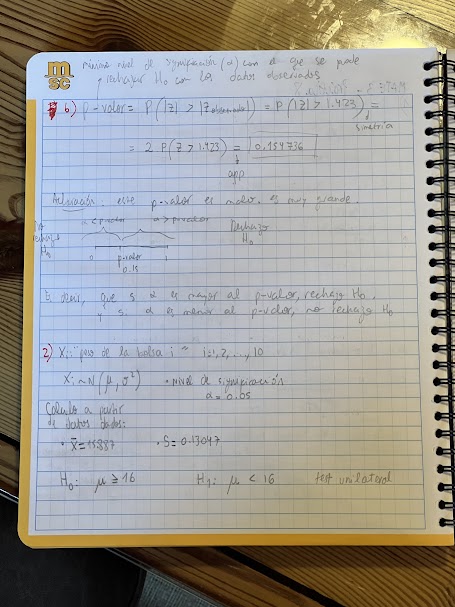 msc
mínimo nivel de significación (α) con el que se puede
rechazar H₀ con los datos observados
b) p-valor = P(|Z| > |Z observado|) = P(|Z| > 1.423) =
simetría
= 2 P(Z > 1.423) = 0.154736
app
Aclaración: este p-valor es malo. es muy grande.
α < p-valor α > p-valor
no rechazo H₀ Rechazo H₀
0 p-valor 1
0.15
Es decir, que si α es mayor al p-valor, rechazo H₀.
Y si α es menor al p-valor, no rechazo H₀
2) Xi: "peso de la bolsa i" i=1, 2, ..., 10
Xi ~ N(μ, σ²) • nivel de significación
α = 0.05
Calculo a partir
de datos dados:
• X̄ = 15.887 • S = 0.13047
H₀: μ ≥ 16 H₁: μ < 16 test unilateral